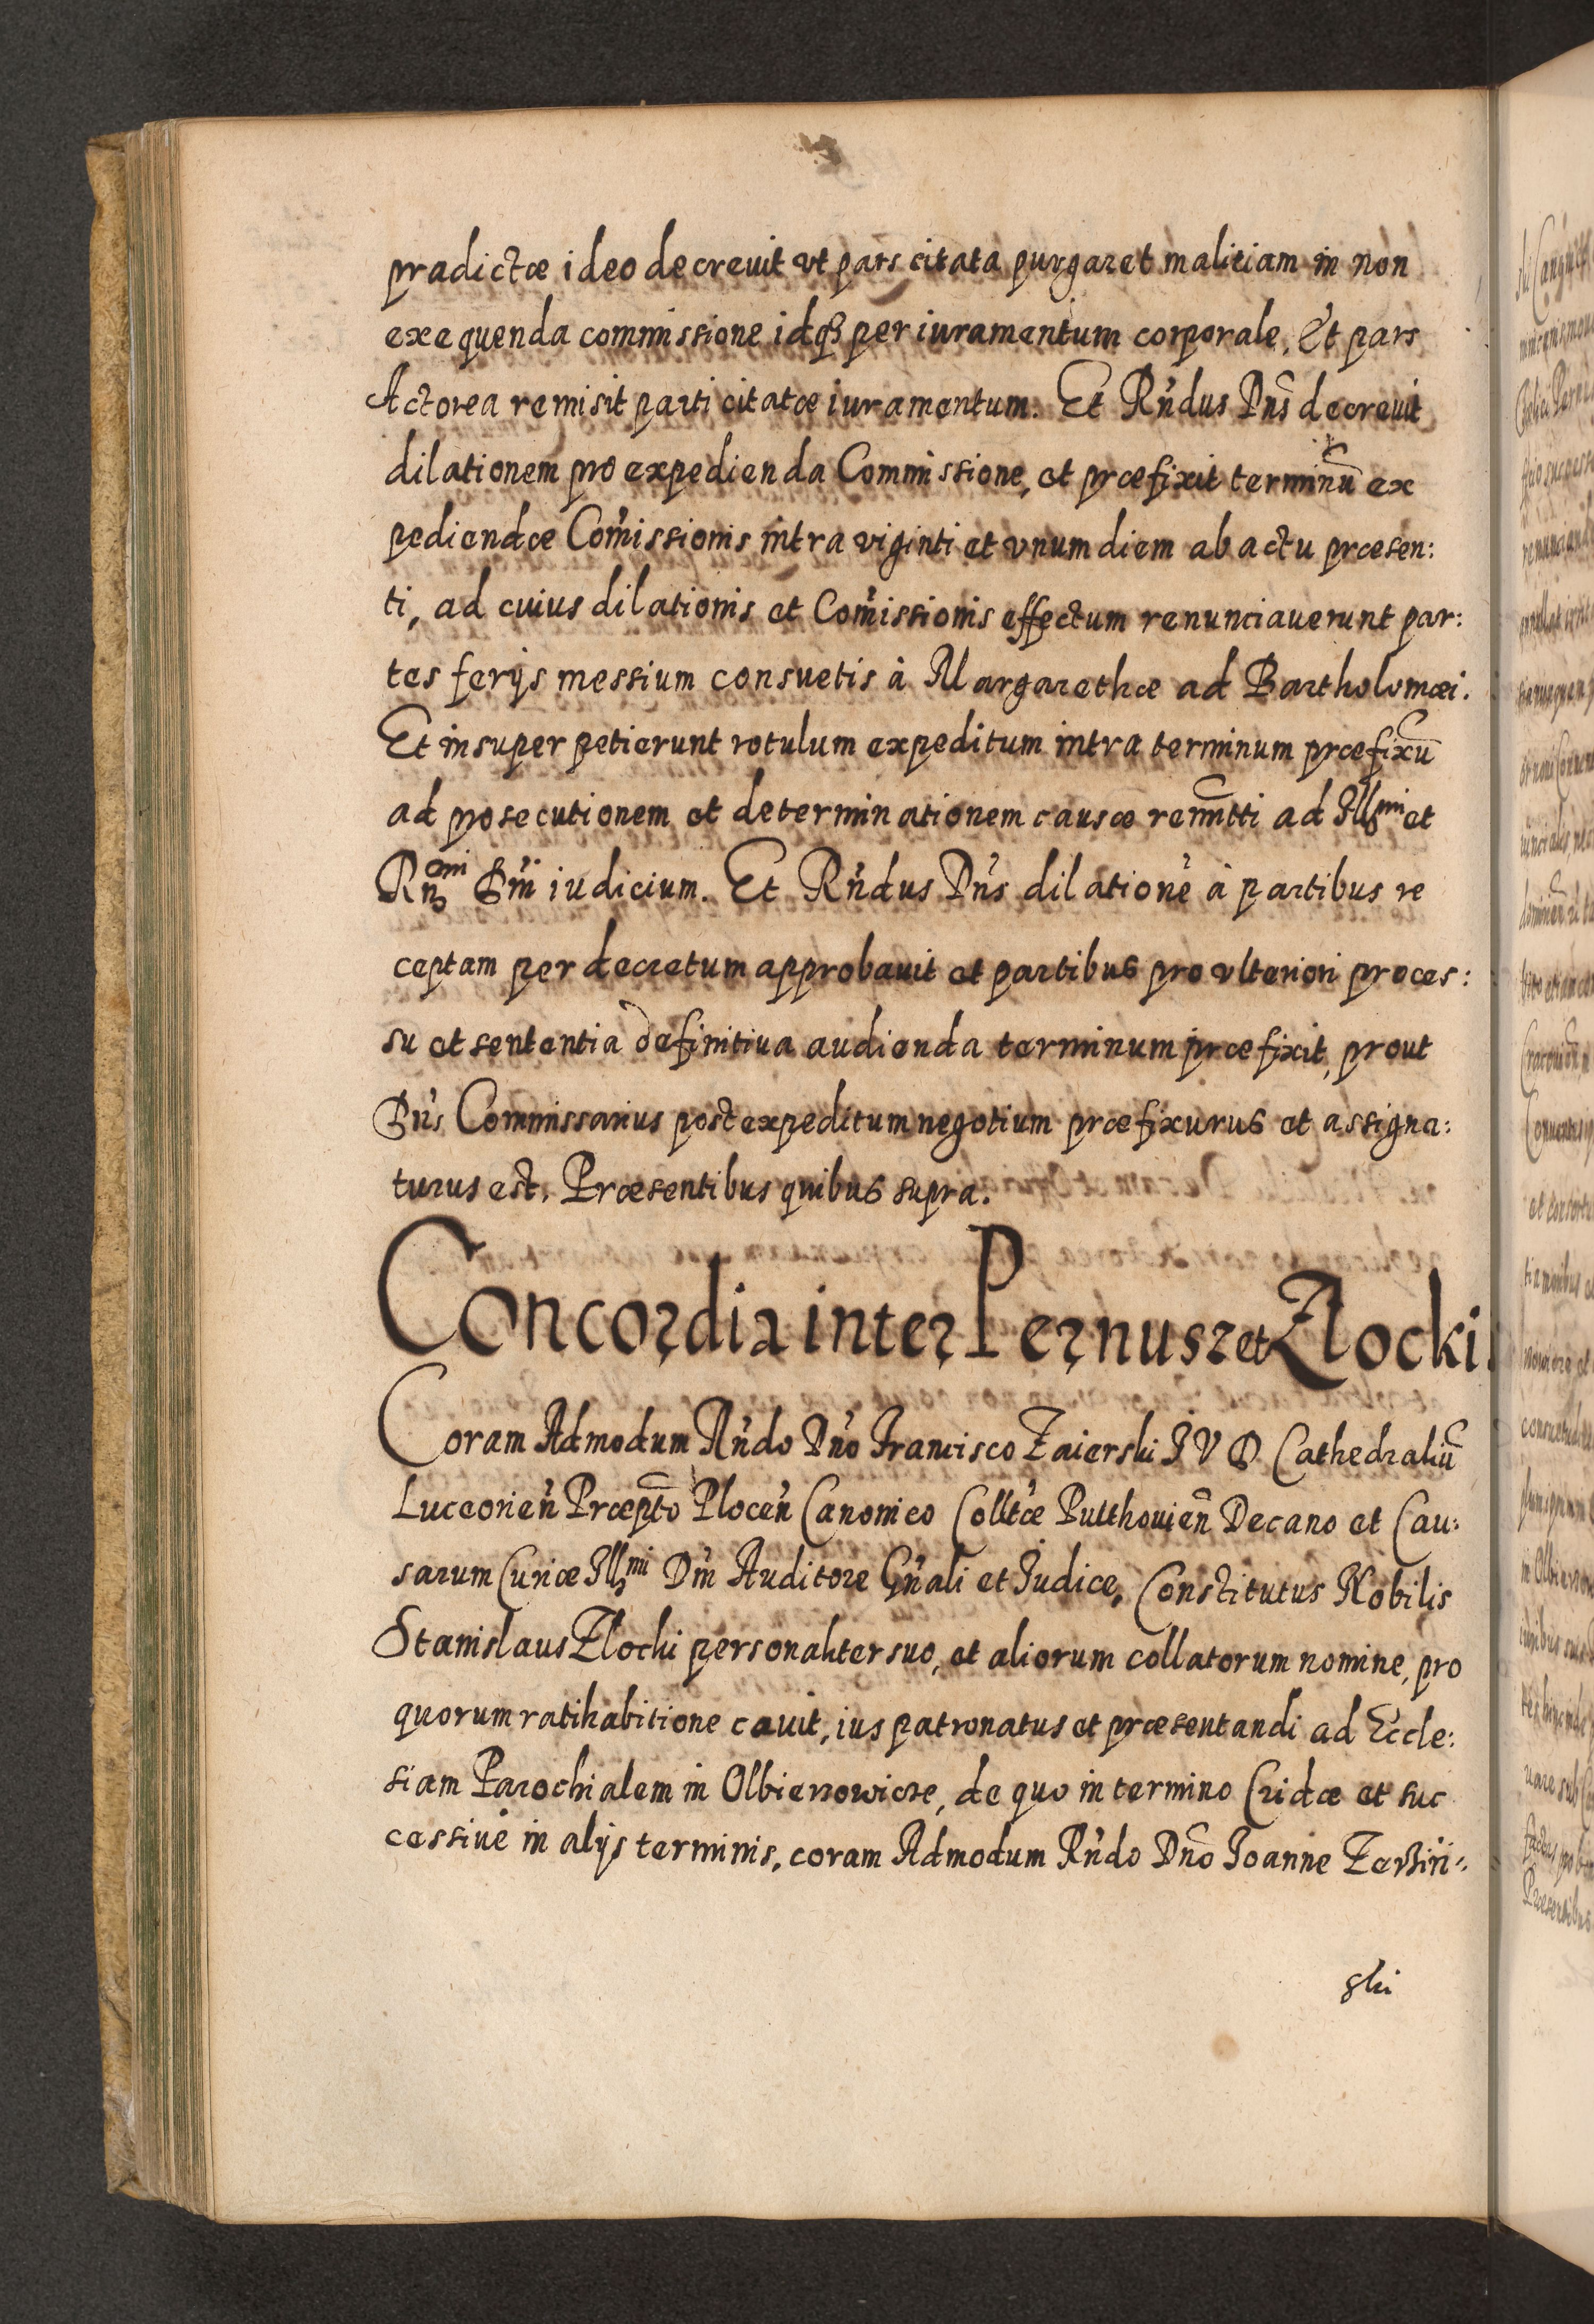 prædictæ ideo decrevit vt pars citata purgaret malitiam in non
exequenda commissione idq3 per iuramentum corporale, Et pars
Actorea remisit parti citatæ iuramentum. Et Rńdus Dns̃ decreuit
dilationem pro expedienda Commissione, et præfixit terminũ ex
pediendæ Com̃issionis intra viginti et vnum diem ab actu præsen:
ti, ad cuius dilationis et Com̃issionis effectum renunciauerunt par:
tes ferijs messium consuetis à Margarethæ ad Bartholomæi.
Et insuper petierunt rotulum expeditum intra terminum præfixũ
ad prosecutionem et determinationem causæ remitti ad Illmi et
Rndmi Dni iudicium. Et Rńdus Dńs dilationẽ à partibus re
ceptam per decretum approbauit et partibus pro vlteriori proces:
su et sententia definitiua audienda terminum præfixit, prout
Dńs Commissarius post expeditum negotium præfixurus et assigna:
turus est. Præsentibus quibus supra.
Concordia inter Pernusz et Zlocki.
Coram Admodum Rńdo Dńo Francisco Zaierski I V D Cathedraliũ
Luceorień Præptõ Plocen̄ Canonico Colltæ Pulthouień Decano et Cau:
sarum Curiæ Illmi Dńi Auditore Gńali et Iudice, Constitutus Nobilis
Stanislaus Zlocki personaliter suo, et aliorum collatorum nomine, pro
quorum ratihabitione cauit, ius patronatus et præsentandi ad Eccle:
siam Parochialem in Olbierzowicze, de quo in termino Cridæ et suc
cessiuè in alijs terminis, coram Admodum Rńdo Dnõ Ioanne
ski